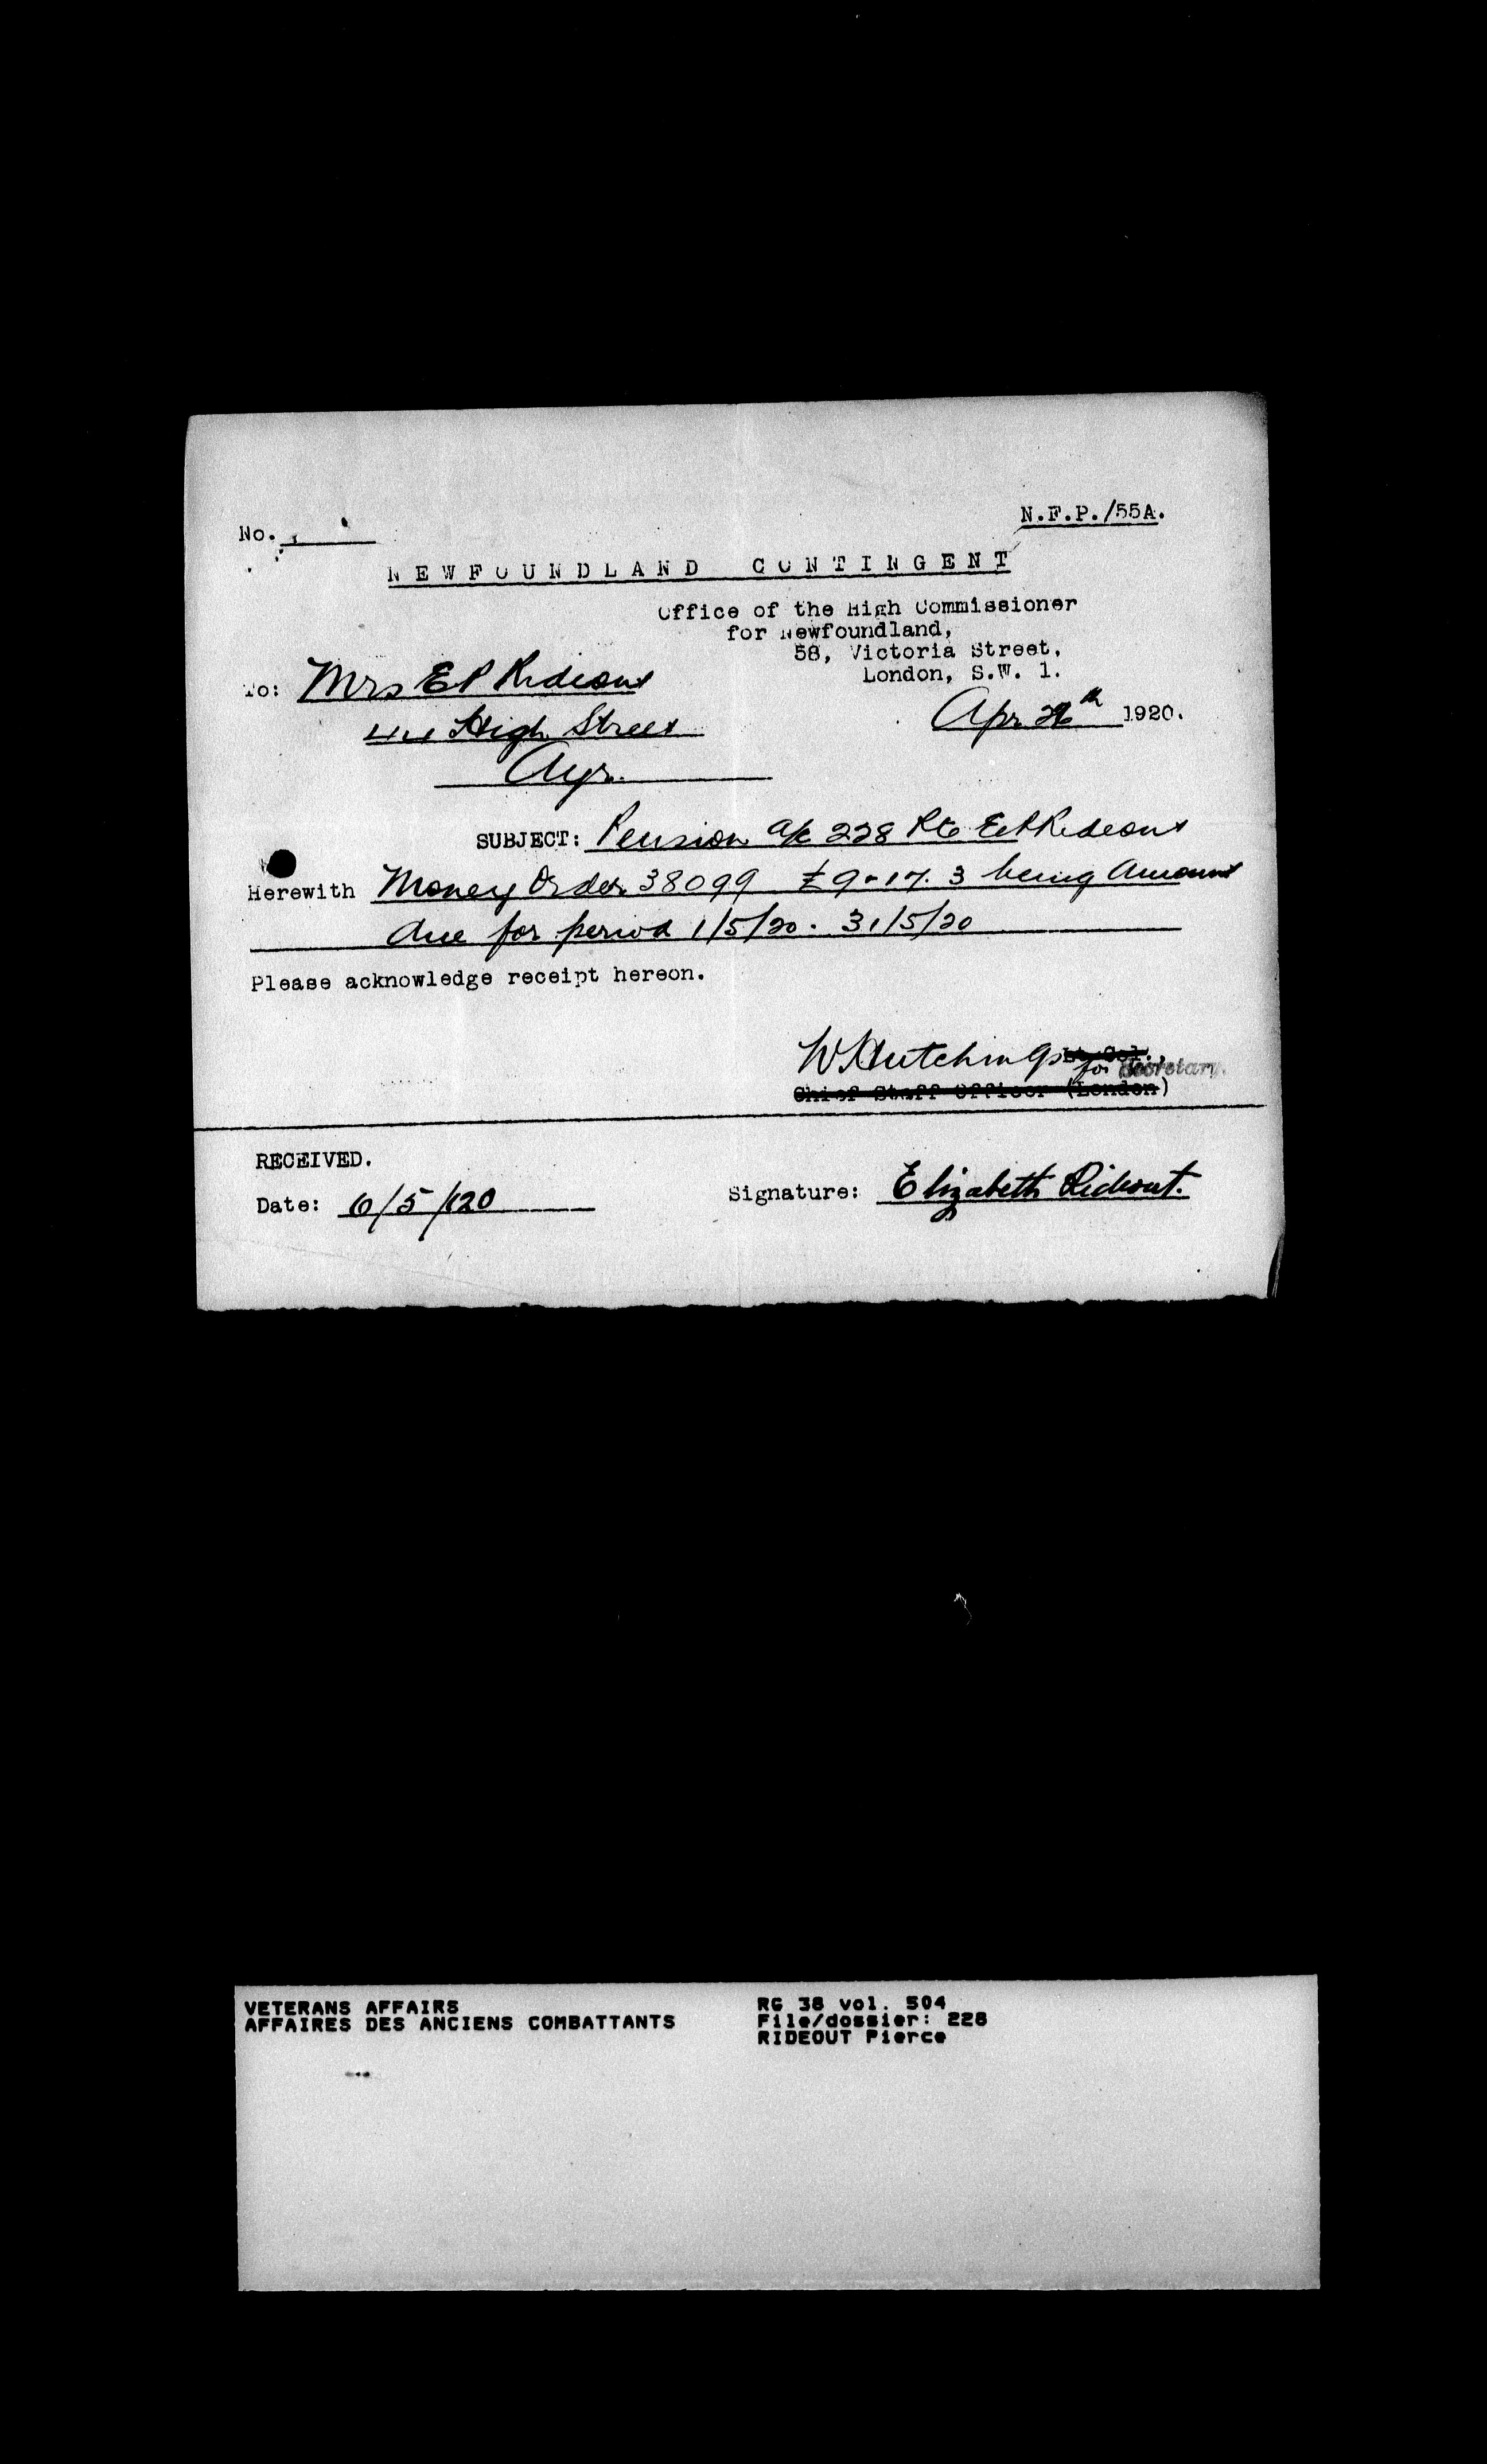 N.F.P./55A.
No.
NEWFOUNDLAND CONTINGENT
Office of the High Commissioner
for Newfoundland,
58, Victoria Street,
London, S.W. 1.
To: Mrs E P Rideout
High Street
Apr 26th 1920.
Ayr.
SUBJECT: Pension a/c 228 Pte E P Rideout
Herewith Money Order 38099 £9-17.3 being Amount
due for period 1/5/20 - 31/5/20
Please acknowledge receipt hereon.
W Hutchings Lt Col.,
for Secretary.
Chief Staff Officer (London)
RECEIVED.
Date: 6/5/20 Signature: Elizabeth Rideout.
VETERANS AFFAIRS RG 38 vol. 504
AFFAIRES DES ANCIENS COMBATTANTS File/dossier: 228
RIDEOUT Pierce